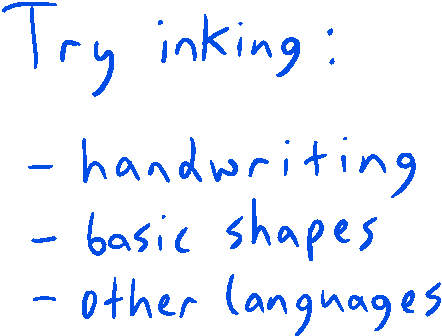 Try inking:
- handwriting
- basic shapes
- other languages